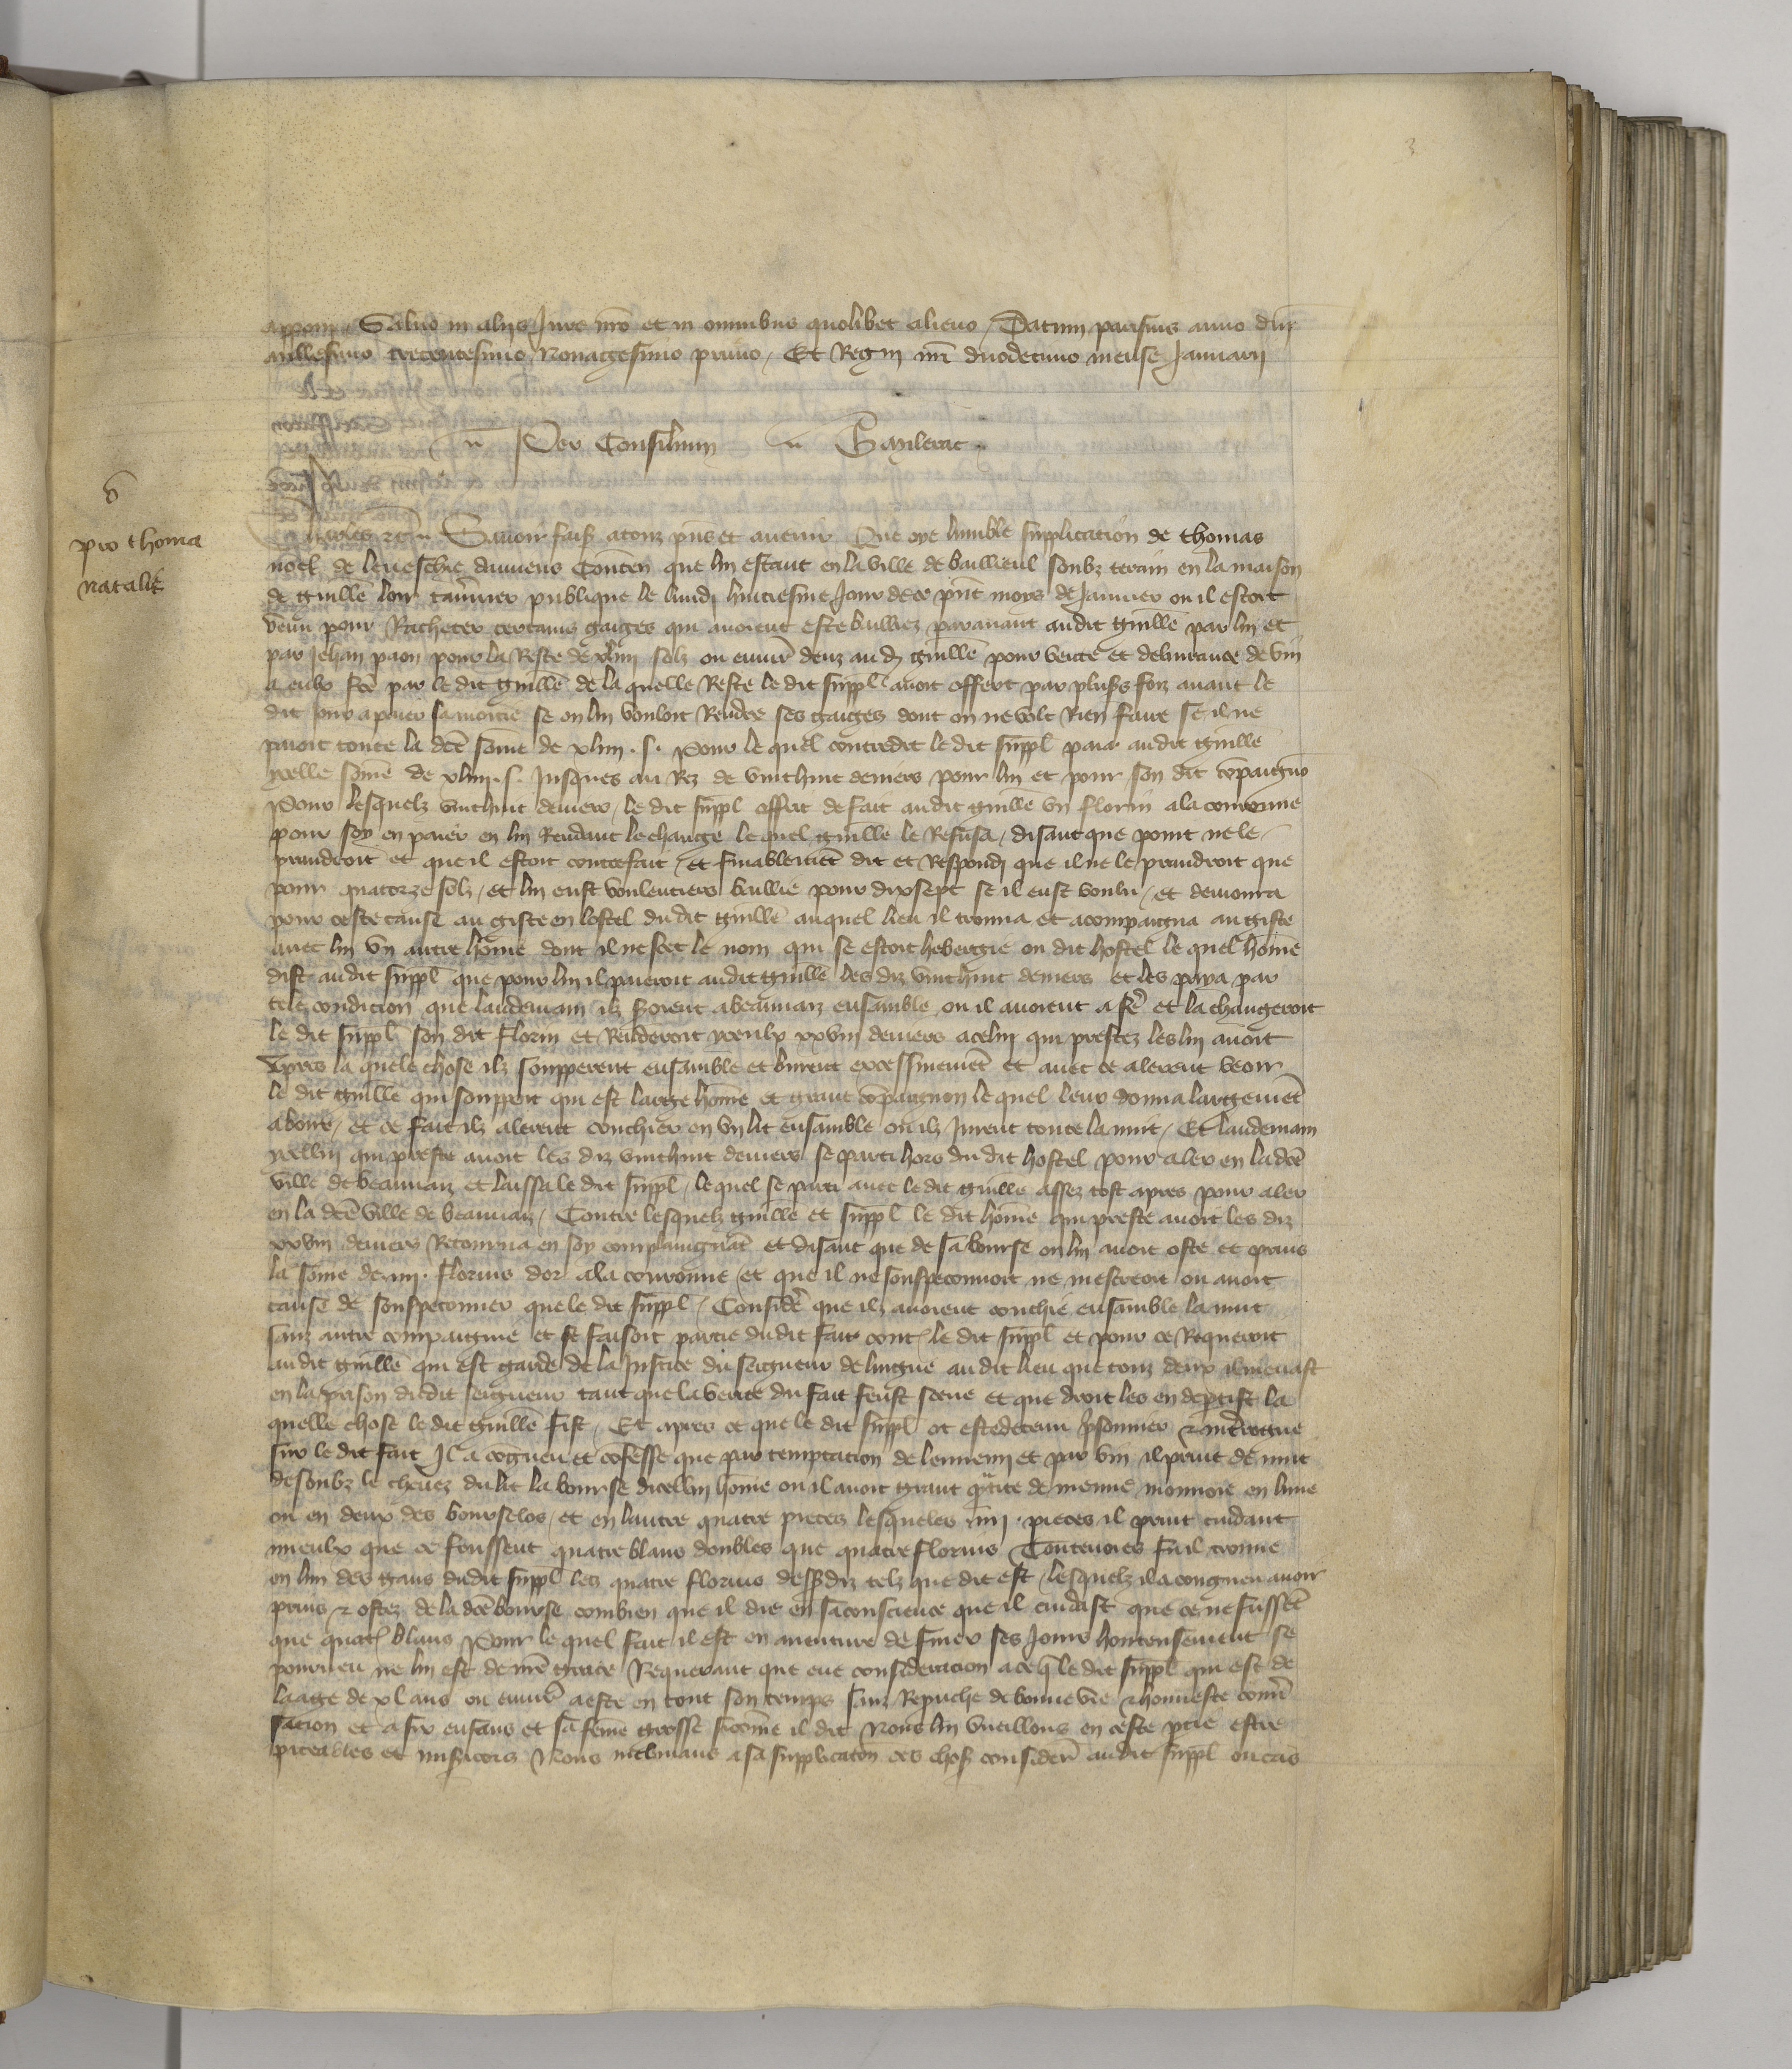 3
apponi. Salvo in aliis Jure nro et in omnibus quolibet alieno. Datum parisius anno dni
millesimo trecentesimo Nonagesimo primo. Et Regni nri duodecimo mense Januarii
Per Consilium Baylerac
6
pro thoma
natalis
Charles etc. Savoir faiss a touz pns et avenir Que oye lumble supplication de thomas
noel de leveschie damiens Conten que lui estant en la ville de bailleul soubz terain en la maison
de guille tavnier publique le lundi huitiesme Jour de ce pnt moys de Janvier ou il estoit
venu pour Racheter certains gaiges qui avoient este bailliez paravant audit guille par lui et
par Jehan paon pour la Reste de xliiii solz ou envir deuz aud guille pour vente et delivrance de vin
a eulx fce par le dit guille de la quelle Reste le dit suppl avoit offert par pluss foiz avant le
dit jour a paier sa moitie se on lui vouloit Rendre ses gaiges dont on ne volt Rien faire se il ne
paioit toute la dce some de xliiii . s. Pour le quel contredit le dit suppl paia audit guille
ycelle some de xliiii . s. Jusques au Rez de vint huit deniers pour lui et pour son dit copaignon
Pour lesquelz vint huit deniers, le dit suppl offrit de fait audit guille un florin a la couronne
pour soy en paier en lui Rendant le change le quel guille le Refusa, disant que point ne le
prandroit et que il estoit contrefait, et finablemet dit et Respondi que il ne le prandroit que
pour quatorze solz, et lui eust voulentiers baillie pour dix sept se il eust voulu, et demoura
pour ceste cause au giste en lostel du dit guille auquel lieu il trouva et acompaigna au giste
avec lui un autre home dont il ne scet le nom qui se estoit hebergie ou dit hostel le quel home
dist audit suppl que pour lui il paieroit audit guille les diz vint huit deniers et les paya par
tele condicion que landemain ilz yroient a beauvaiz ensamble ou il avoient a fe et la changeroit
le dit suppl son dit florin et Renderoit yceulx xxviii deniers a celui qui prestez les lui avoit
Apres la quele chose ilz soupperent ensamble et burent excessivemet et avec ce alerent veoir
le dit guille qui souppoit qui est large home et grant copaignon le quel leur donna largemet
a boire, et ce fait ilz alerent couchier en un lit ensamble ou ilz Jurent toute la nuit, Et landemain
ycellui qui preste avoit les diz vint huit deniers se parti hors du dit hostel pour aler en la dce
ville de beauvaiz et laissa le dit suppl, le quel se parti avec le dit guille assez tost apres pour aler
en la dce ville de beauvaiz, Contre lesquelz guille et suppl le dit home qui preste avoit les diz
xxviii deniers Retourna en soy complaingnat et disant que de sa bourse on lui avoit oste et prins
la some de iiii. florins dor a la couronne, et que il ne souspeconnoit ne mescreoit ou avoit
cause de souspeconner que le dit suppl, Consider que ilz avoient couchie ensamble la nuit
sanz autre compaignie et se faisoit partie du dit fait cont le dit suppl et pour ce Requeroit
au dit guille qui est garde de la Justice du seigneur de lingne au dit lieu que touz deux il menast
en la prison du dit seigneur tant que la verite du fait feust sceue et que droit les en deptist la
quelle chose le dit guille fist, Et apres ce que le dit suppl ot este detenu prisonnier et interrogue
sur le dit fait Il a cogneu et cofesse que par temptacion de lennemi et par vin il print de nuit
desoubz le chevez du lit la bourse dicellui home ou il avoit grant qtite de menue monnoie en lune
ou en deux des bourselos, et en lautre quatre pieces lesqueles iiii . pieces il print cuidant
mieulx que ce feussent quatre blans doubles que quatre florins Toutevoies fu il trouve
en lun des gans dudit suppl les quatre florins dessdiz telz que dit est, lesquelz il a congneu avoir
prins et ostez de la dce bourse combien que il die en sa conscience que il cuidast que ce ne fusset
que quat blans Pour le quel fait il est en aventure de finer ses Jours honteusement se
pourveu ne lui est de nre grace Requerant que eue consideracion a ce q le dit suppl qui est de
laage de xl ans ou envir a este en tout son temps sanz Repuche de bonne vie et honneste conv
sation et a six enfans et sa feme grosse sicome il dit Nous lui vueillons en ceste ptie estre
piteables et misicors Nous inclinans a sa supplicaton ces choss consider audit suppl ou cas